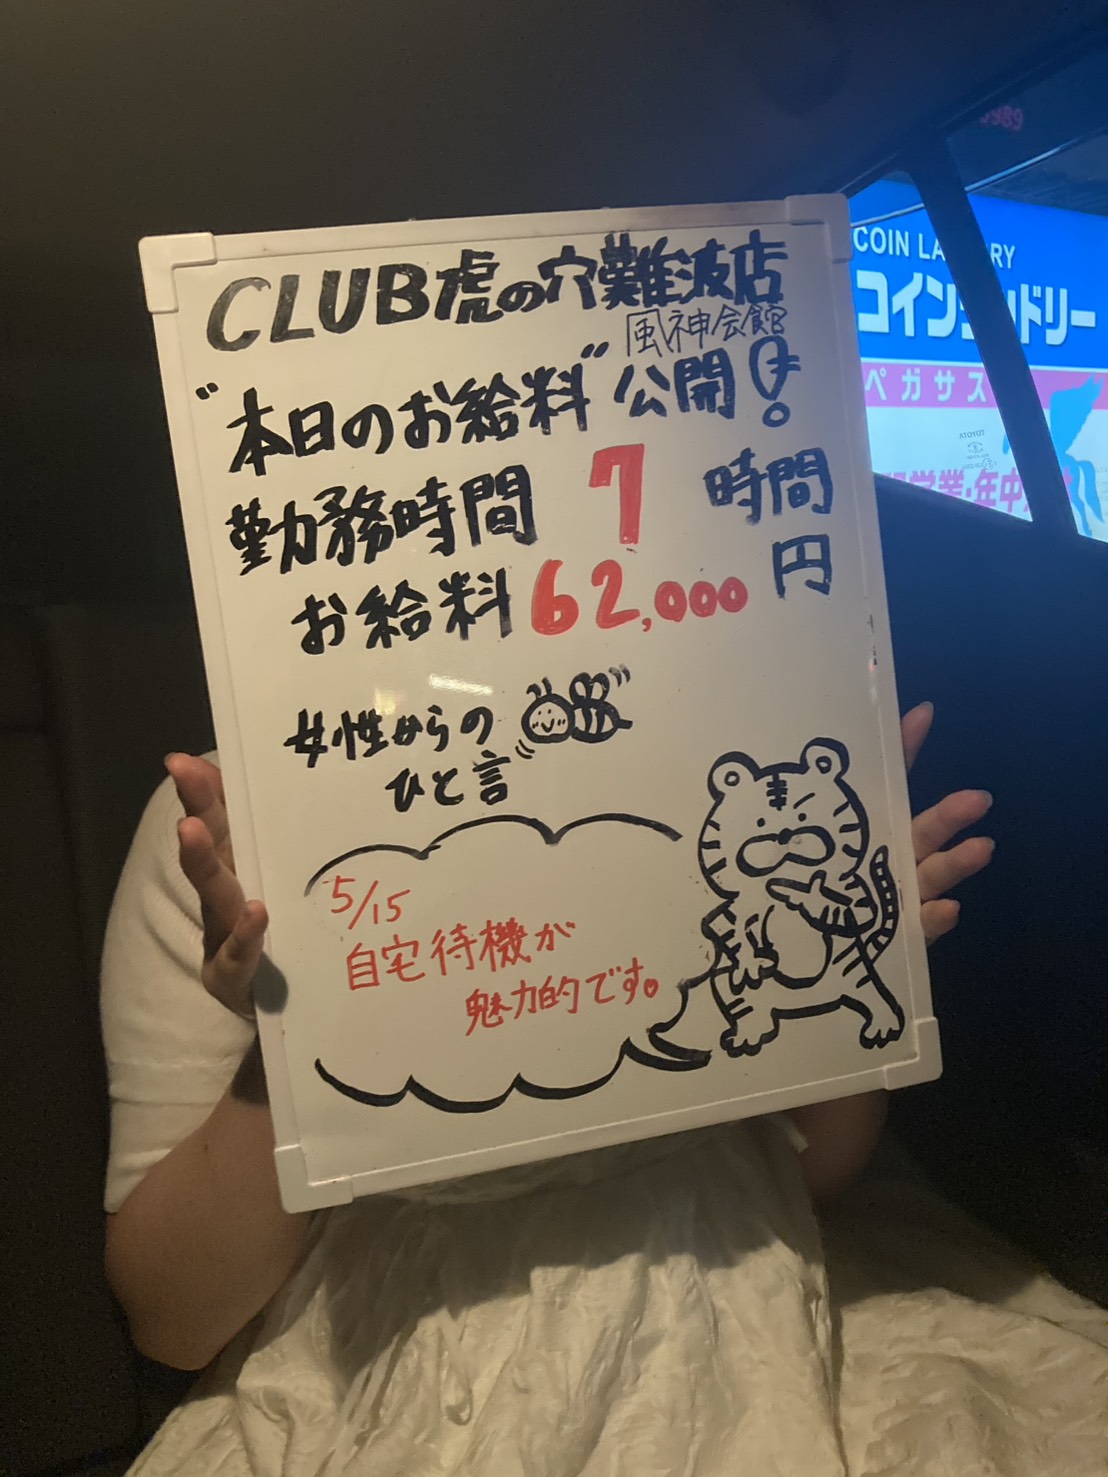 CLUB虎の穴難波店
風神会館
"本日のお給料"公開!
勤務時間 7 時間
お給料 62,000 円
女性からの
ひと言
5/15
自宅待機が
魅力的です。
COIN LA
RY
コイン
ドリー
ペガサス
営業・年中
TOYOTA